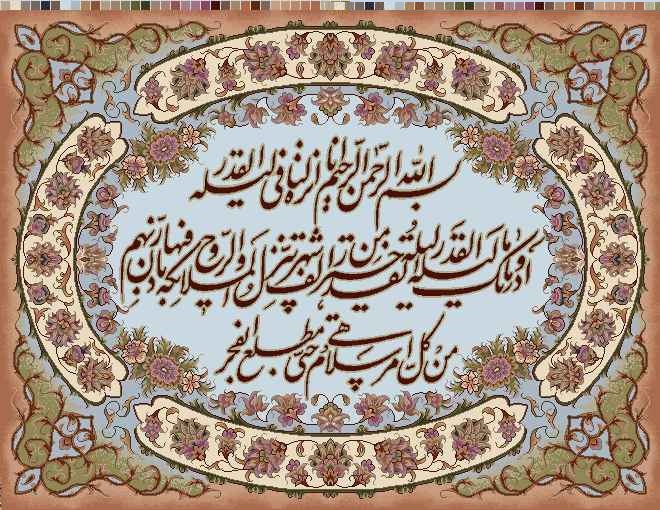 بسم الله الرحمن الرحیم انا انزلناه فی لیلة القدر
و ما ادریک ما لیلة القدر لیلة القدر خیر من الف شهر تنزل الملائکة و الروح فیها باذن ربهم
من کل امر سلام هی حتی مطلع الفجر